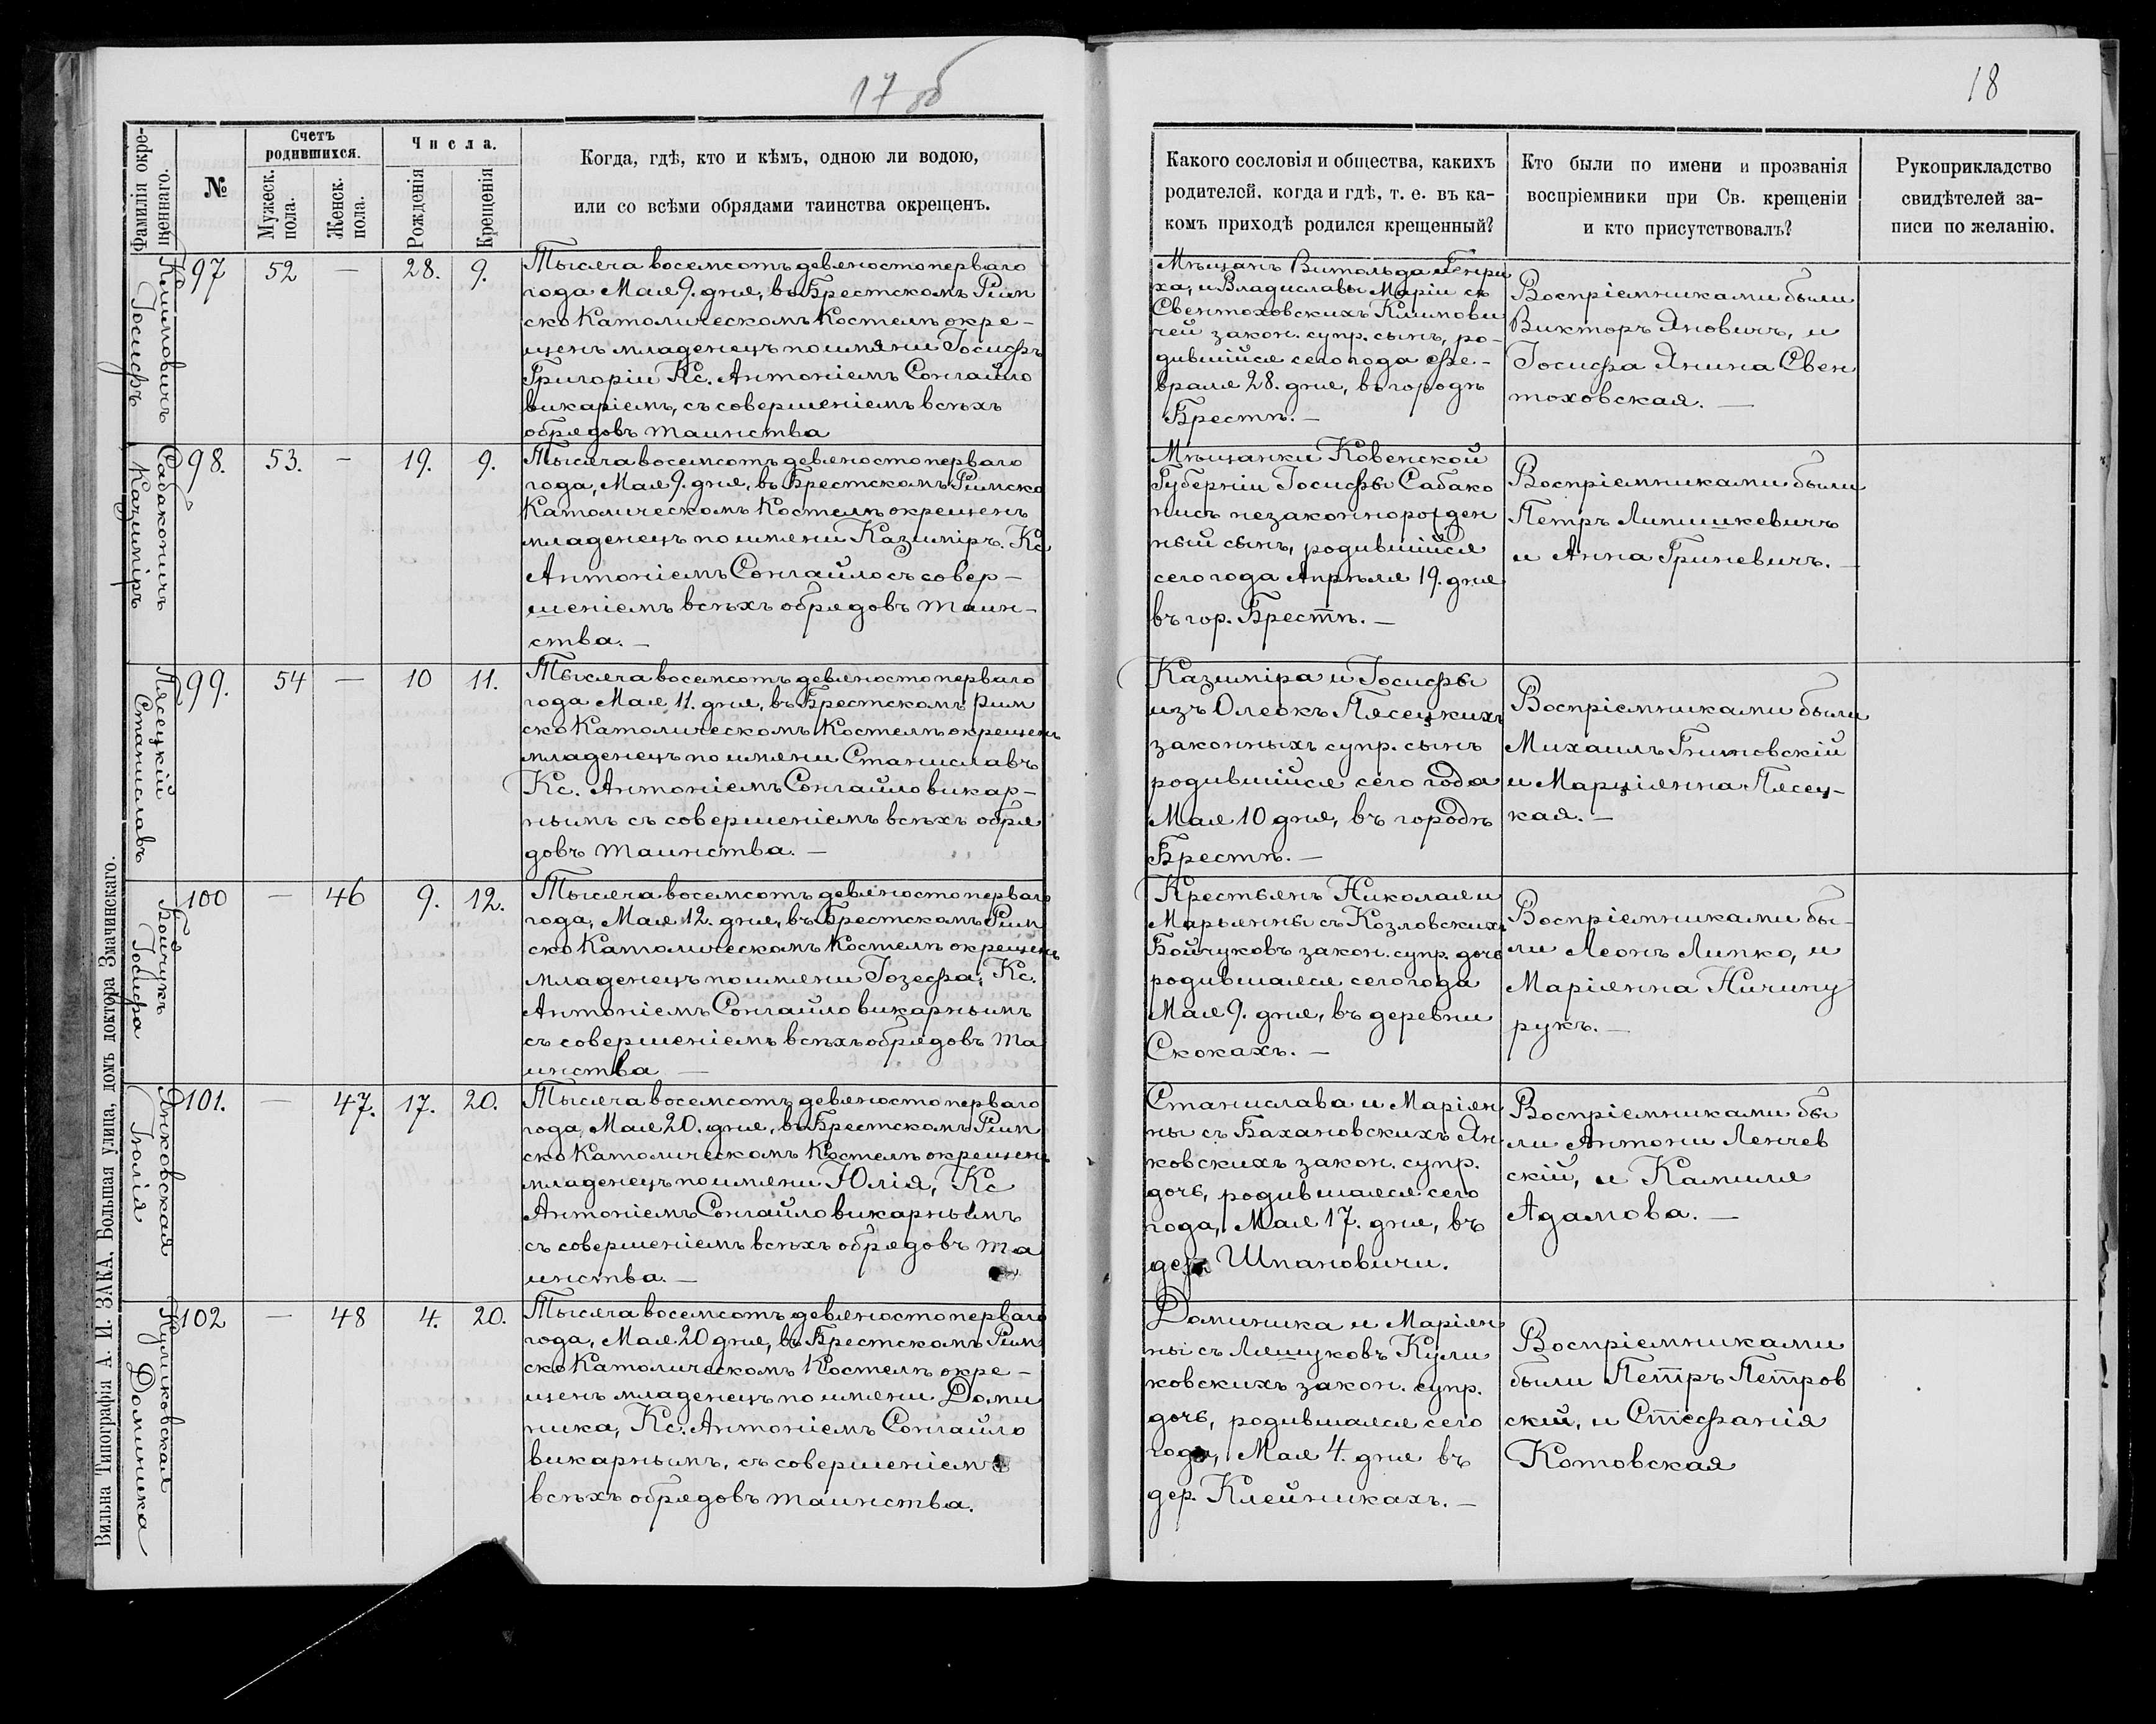 17 об
18
Фамилія окре-
щеннаго.
№
Счетъ
родившихся.
Мужеск.
пола.
Женск.
пола.
Числа.
Рожденія
Крещенія
Когда, гдѣ, кто и кѣмъ, одною ли водою,
или со всѣми обрядами таинства окрещенъ.
Какого сословія и общества, какихъ
родителей. когда и гдѣ, т. е. въ ка-
комъ приходѣ родился крещенный?
Кто были по имени и прозванія
воспріемники при Св. крещеніи
и кто присутствовалъ?
Рукоприкладство
свидѣтелей за-
писи по желанію.
Климовичъ
Іосифъ
97 52 — 28. 9.
Тысяча восемсотъ девяносто перваго
года Мая 9. дня, въ Брестскомъ Рим
ско Католическомъ Костелѣ окре-
щенъ младенецъ по имяни Іосифъ
Григорій Кс. Антоніемъ Сонгайло
викаріемъ, съ совершеніемъ всѣхъ
обрядовъ таинства
Мѣщанъ Витольда Генри
ха, и Владиславы Маріи съ
Свентоховскихъ Климови
чей закон. супр. сынъ, ро-
дившійся сего года Фе-
враля 28. дня, въ городѣ
Брестѣ. —
Воспріемниками были
Викторъ Яновичъ, и
Іосифа Янина Свен
тоховская. —
Сабаконичъ
Казиміръ
98. 53. — 19. 9.
Тысяча восемсотъ девяносто перваго
года, Мая 9. дня, въ Брестскомъ Римско
Католическомъ Костелѣ окрещенъ
младенецъ по имяни Казиміръ. Кс
Антоніемъ Сонгайло съ совер-
шеніемъ всѣхъ обрядовъ таин-
ства. —
Мѣщанки Ковенской
Губерніи Іосифы Сабако
нисъ незаконнорожден
ный сынъ, родившійся
сего года Апрѣля 19. дня
въ гор. Брестѣ. —
Воспріемниками были
Петръ Липишкевичъ
и Анна Гриневичъ. —
Пясецкій
Станиславъ
99. 54 — 10 11.
Тысяча восемсотъ девяносто перваго
года Мая 11. дня, въ Брестскомъ Рим
ско Католическомъ Костелѣ окрещенъ
младенецъ по имяни Станиславъ
Кс. Антоніемъ Сонгайло викар-
нымъ съ совершеніемъ всѣхъ обря
довъ таинства. —
Казиміра и Іосифы
изъ Олеокъ Пясецкихъ
законныхъ супр. сынъ
родившійся сего года
Мая 10 дня, въ городѣ
Брестѣ. —
Воспріемниками были
Михаилъ Гнитовскій
и Марціянна Пясец-
кая. —
Бойчукъ
Іосифа
100 — 46 9. 12.
Тысяча восемсотъ девяносто перваго
года, Мая 12. дня, въ Брестскомъ Рим
ско Католическомъ Костелѣ окрещенъ
младенецъ по имяни Іозефа, Кс.
Антоніемъ Сонгайло викарнымъ
съ совершеніемъ всѣхъ обрядовъ та
инства —
Крестьянъ Николая и
Марьянны съ Козловскихъ
Бойчуковъ закон. супр. дочь
родившаяся сего года
Мая 9. дня, въ деревни
Скокахъ. —
Воспріемниками бы-
ли Леонъ Липко, и
Маріянна Ничипу
рукъ. —
Янковская
Іюлія
101. — 47. 17. 20.
Тысяча восемсотъ девяносто перваго
года, Мая 20. дня, въ Брестскомъ Рим
ско Католическомъ Костелѣ окрещенъ
младенецъ по имяни Юлія, Кс
Антоніемъ Сонгайло викарнымъ
съ совершеніемъ всѣхъ обрядовъ та
инства. —
Станислава и Маріян
ны съ Бахановскихъ Ян
ковскихъ закон. супр.
дочь, родившаяся сего
года, Мая 17. дня, въ
дер. Шпановичи.
Воспріемниками бы
ли Антони Ленчев
скій, и Камиля
Адамова. —
Куликовская
Доминика
102 — 48 4. 20.
Тысяча восемсотъ девяносто перваго
года, Мая 20 дня, въ Брестскомъ Рим
ско Католическомъ Костелѣ окре-
щенъ младенецъ по имяни Доми
ника, Кс. Антоніемъ Сонгайло
викарнымъ, съ совершеніемъ
всѣхъ обрядовъ таинства.
Доминика и Маріян
ны съ Лящуковъ Кули
ковскихъ закон. супр.
дочь, родившаяся сего
года, Мая 4. дня въ
дер. Клейникахъ. —
Воспріемниками
были Петръ Петров
скій, и Стефанія
Котовская
Вильна Типографія А. И. ЗАКА, Большая улица, домъ доктора Змачинскаго.